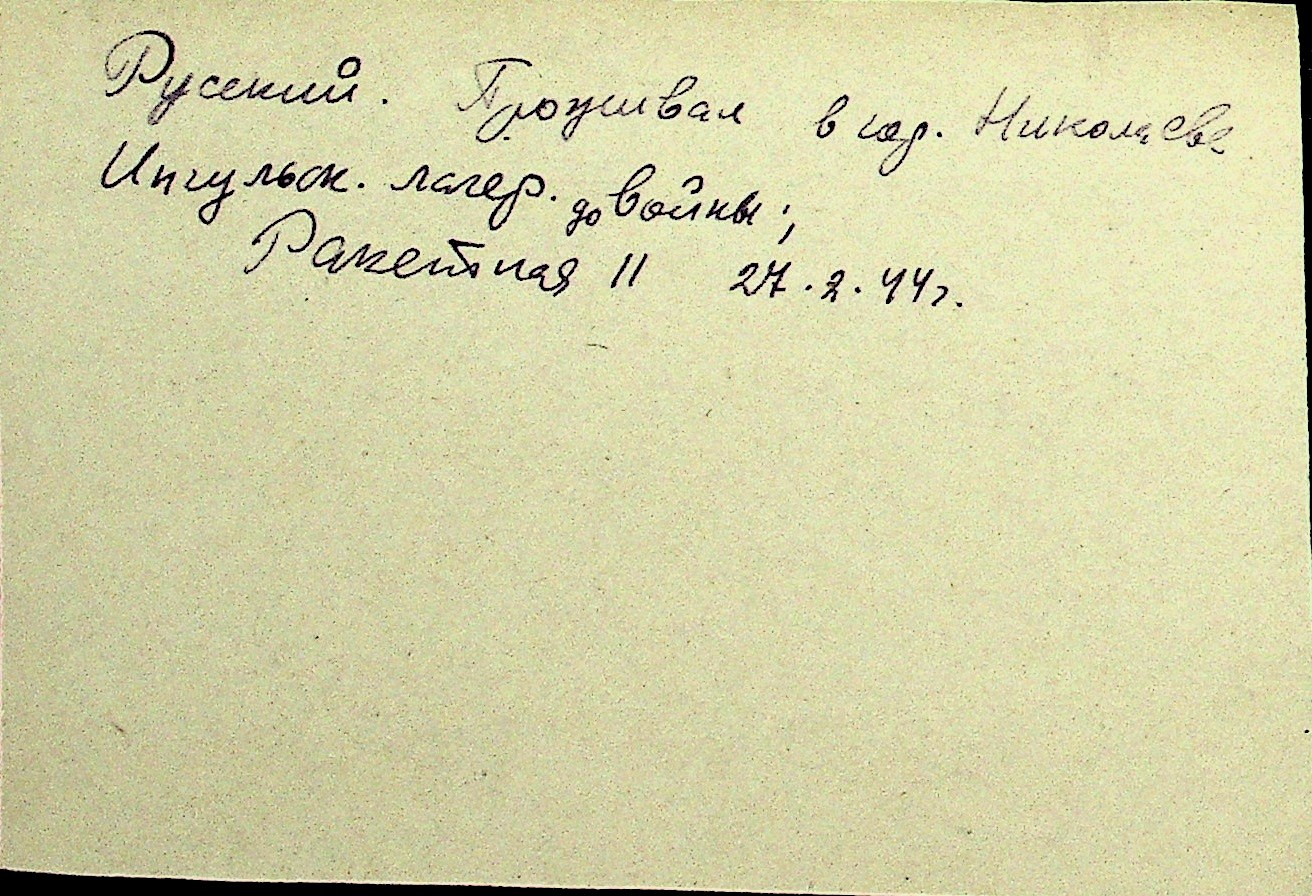 Русский. Проживал в гор. Николаеве
Ингульск. лагер. до войны;
Ракетная 11 27.2.44г.